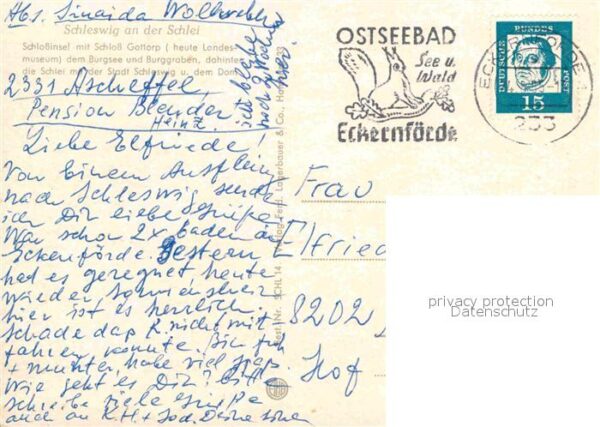 Abs. Sinaida
Schleswig an der Schlei
Schloßinsel mit Schloß Gottorp ( heute Landes-
museum) dem Burgsee und Burggraben, dahinter
die Schlei mit der Stadt Schleswig u. dem Dom
2331 Ascheffel,
Pension Blender
Heinz
Liebe Elfriede!
Von einem Ausflug
nach Schleswig sende
ich Dir liebe Grüße.
War schon 2x baden in
Eckenförde. Gestern
hat es geregnet heute
wieder Sonnenschein
hier ist es herrlich
schade daß R. nicht mit
fahren konnte. Bin
+ munter, habe viel Spaß
Wie geht es Dir?
schreibe viele Grüße
auch an R.H.+
OSTSEEBAD
See u.
Wald
Eckernförde
DEUTSCHE BUNDESPOST
15
233
Frau
Elfried
8202
Hof
privacy protection
Datenschutz